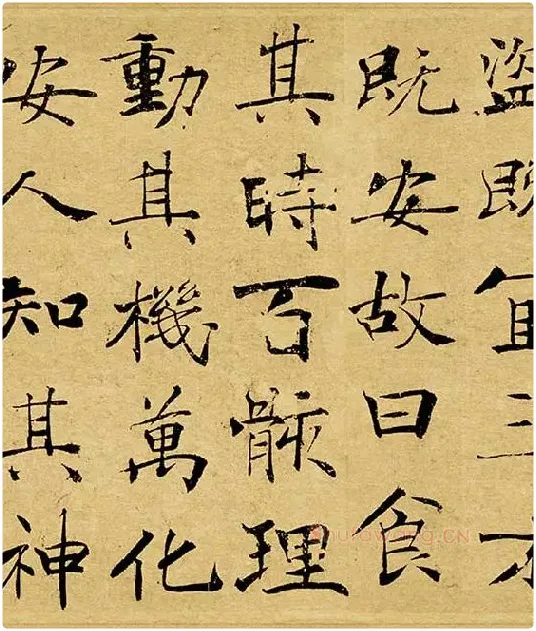 盜既宜三才
既安故曰食
其時百骸理
動其機萬化
安人知其神